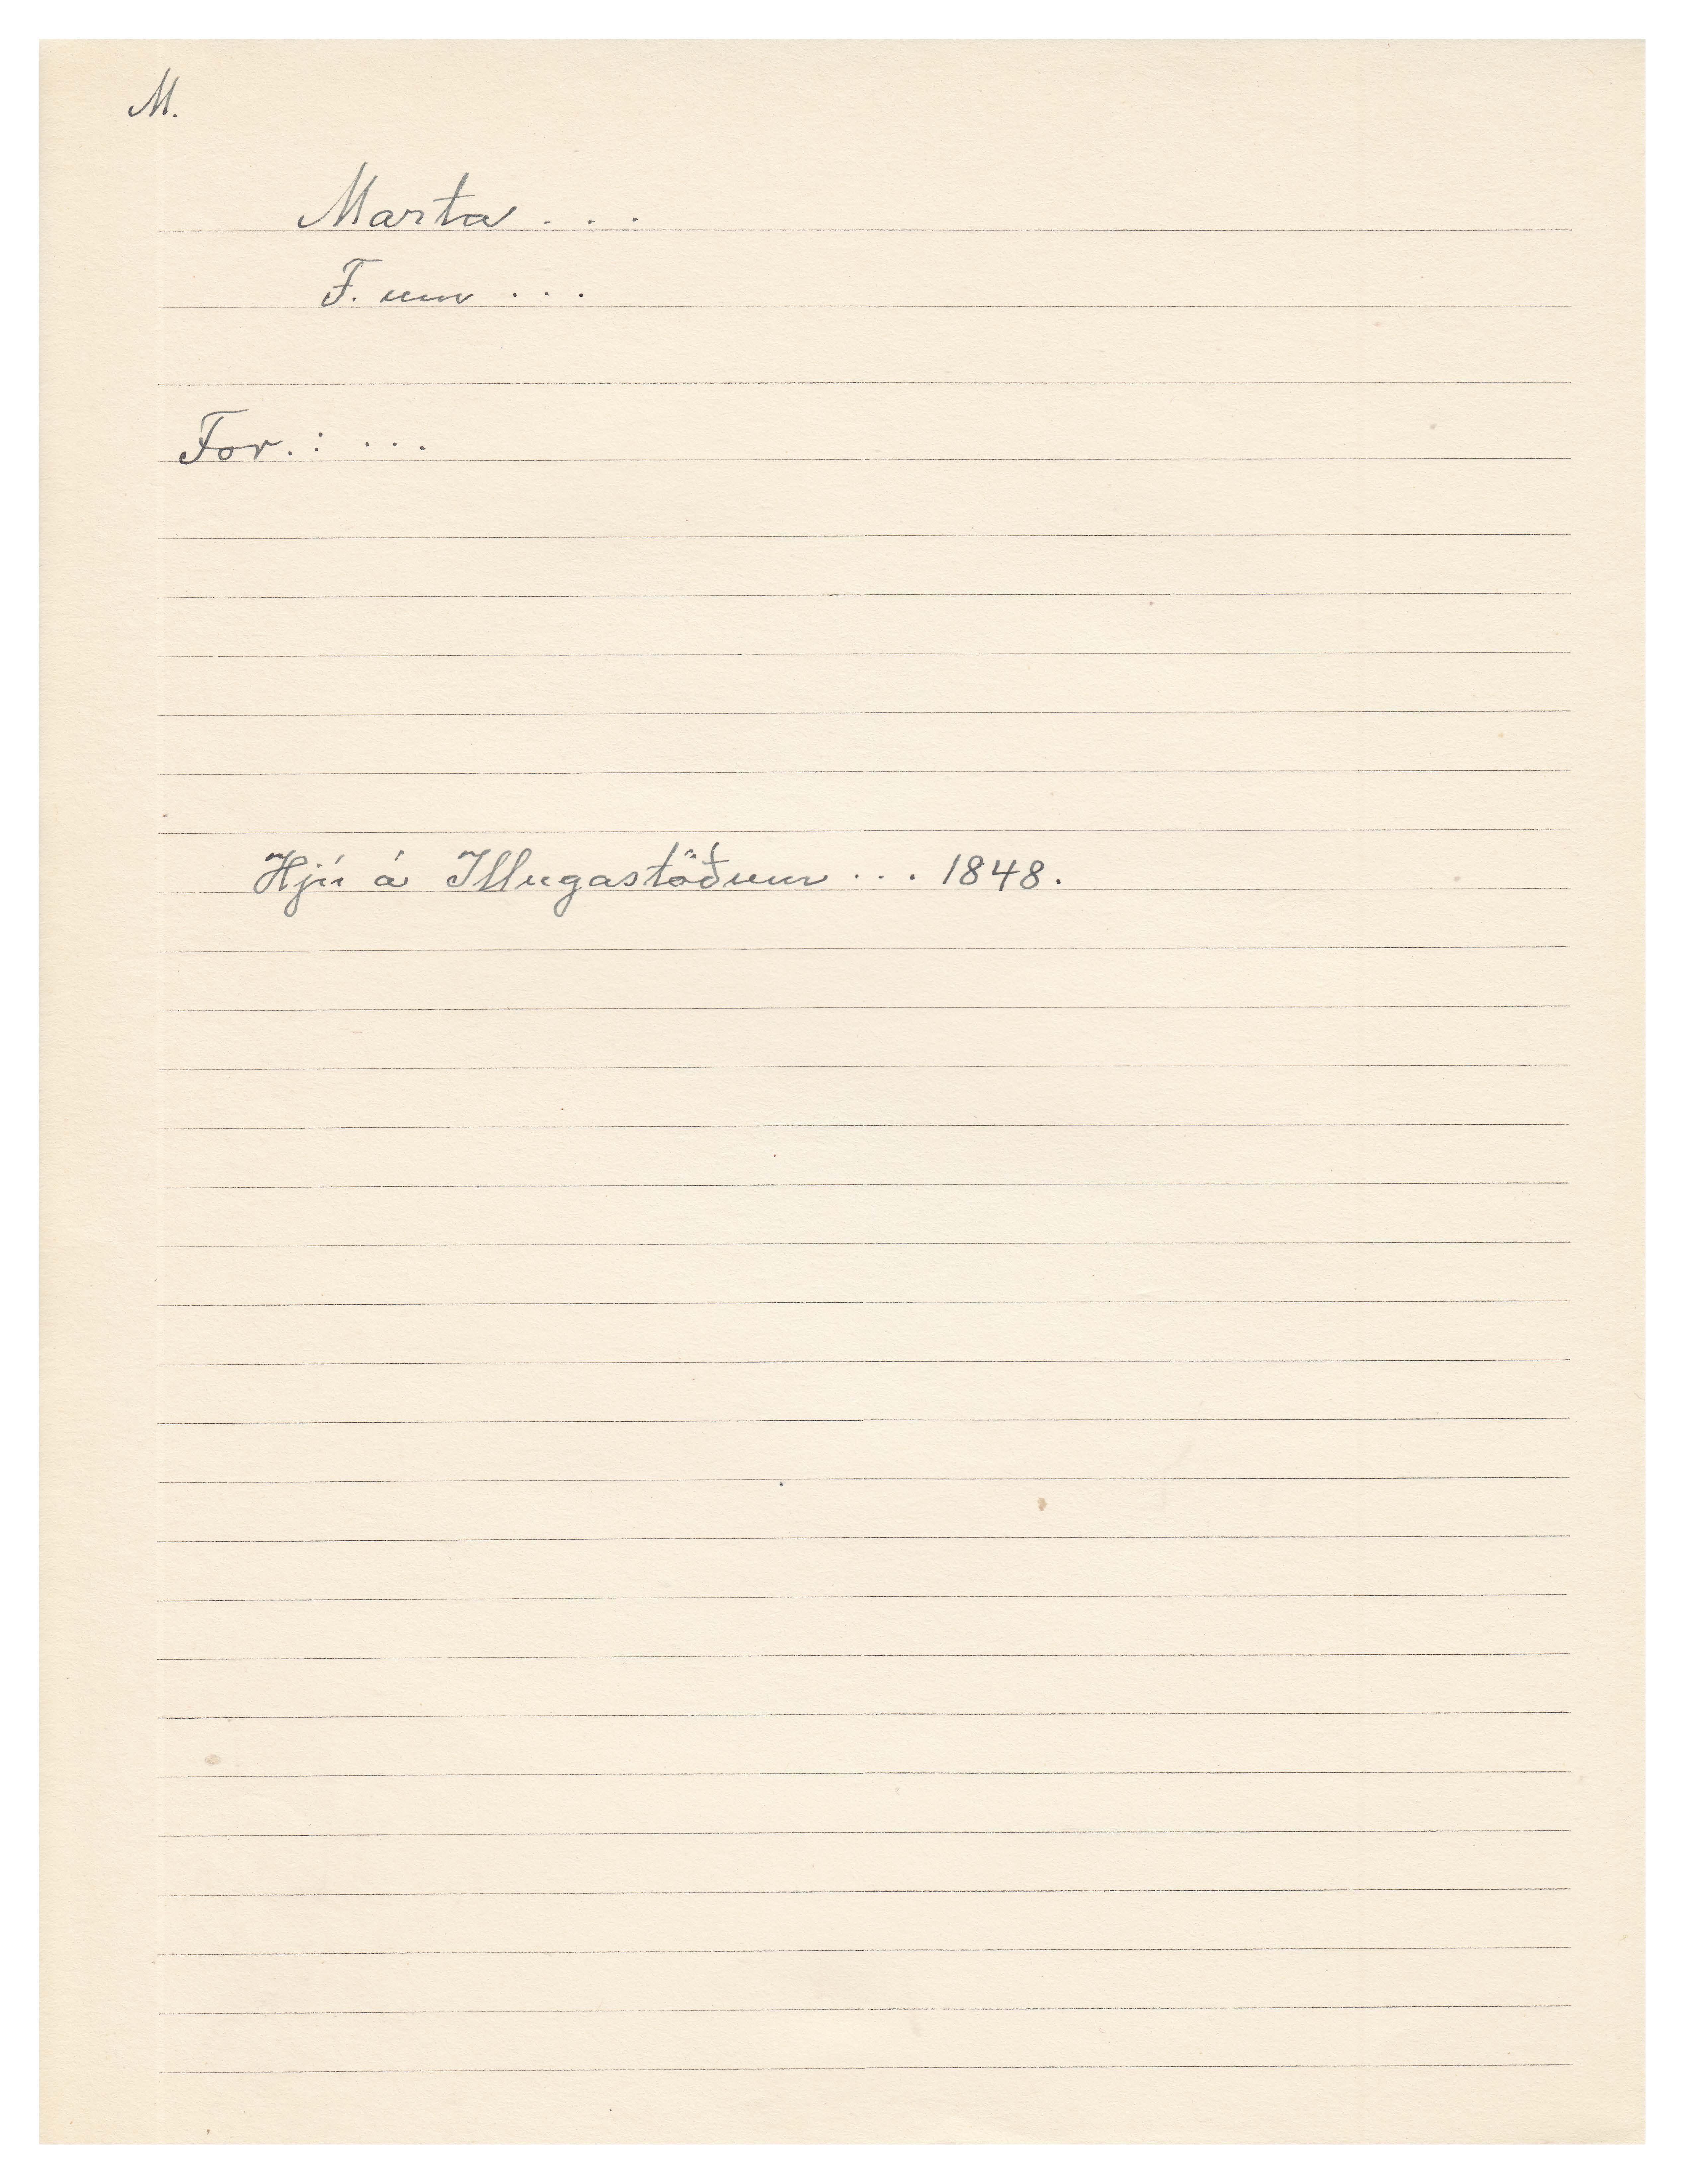 M.
Marta . . .
F. um . . .
For. : . . .
Hjú á Illugastöðum . . . 1848.